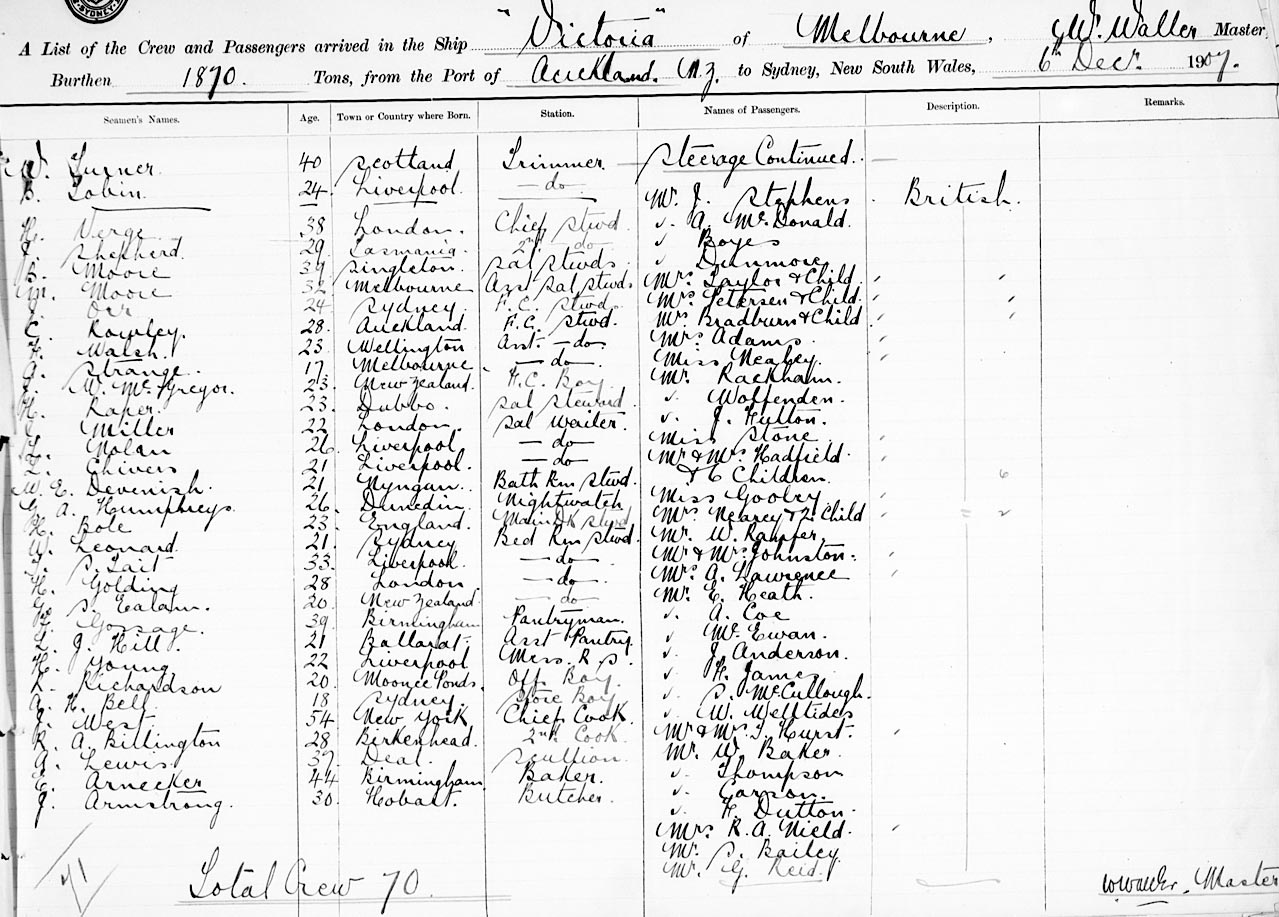 SYDNEY
A List of the Crew and Passengers arrived in the Ship "Victoria" of Melbourne, W. Waller Master,
Burthen 1870. Tons, from the Port of Auckland. N.Z. to Sydney, New South Wales, 6th Decr. 1907.
Seamen's Names. Age. Town or Country where Born. Station. Names of Passengers. Description. Remarks.
W. Turner. 40 Scotland Trimmer Steerage Continued.
B. Tobin. 24. Liverpool. — do — Mr. J. Stephens British.
H. Verge 38 London. Chief Stwd " A. McDonald.
J. Shepherd. 29 Tasmania. 2nd do " Boyes
B. Moore 39 Singleton. Sal Stwds " Dunmore
Moore 32 Melbourne Asst Sal Stwds Mrs Taylor & Child
J. Orr 24 Sydney F.C. Stwd Mrs Petersen & Child.
C. Rowley. 28. Auckland. F.C. Stwd. Mrs Bradburn & Child
Walsh. 23 Wellington Asst — do Mrs Adams.
A. Strange. 17 Melbourne — do — Miss Neabey.
W. McGregor. 23. New Zealand. F.C. Boy Mr. Rackham.
H. Raper. 23. Dubbo. Sal Steward " Woffenden.
Miller 22 London. Sal Waiter. " J. Hutton.
Nolan 26 Liverpool — do — Miss Stone
Chivers 21 Liverpool. — do — Mr & Mrs Hadfield.
W. E. Devenish. 21 Nyngan. Bath Rm Stwd. & 6 Children. 6
A. Humphreys. 26. Dunedin. Nightwatch Miss Goolry
H. Bole 23. England. Main Dk Stwd Mrs Nearey & 2 Child 2
W. Leonard. 21. Sydney Bed Rm Stwd Mr. W. Rapfer.
Tait 33. Liverpool. — do — Mr & Mrs Johnston.
H. Golding 28 London — do — Mrs A. Lawrence
S. Ealam. 20. New Zealand — do — Mr. E. Heath.
Gossage. 39. Birmingham Pantryman. " A. Coe
L. J. Hill. 21 Ballarat. Asst Pantry. " McEwan.
H. Young 22 Liverpool Mess. R S. " J. Anderson.
Richardson 20 Moonee Ponds. Off Boy. " H. James
A. H. Bell. 18 Sydney. Store Boy " S. McCullough.
J. West. 54 New York. Chief Cook. " W. Welftides
R. A. Billington 28 Birkenhead. 2nd Cook Mr & Mrs J. Hurst.
A. Lewis. 37. Deal. Scullion. Mr. W. Baker.
E. Arnecker 44 Birmingham Baker. " Thompson
J. Armstrong. 30. Hobart. Butcher. " Carson.
" H. Dutton.
Mrs R. A. Nield.
Mr. S. Bailey
Mr. G. Reid.
71
Total Crew 70.
W Waller. Master